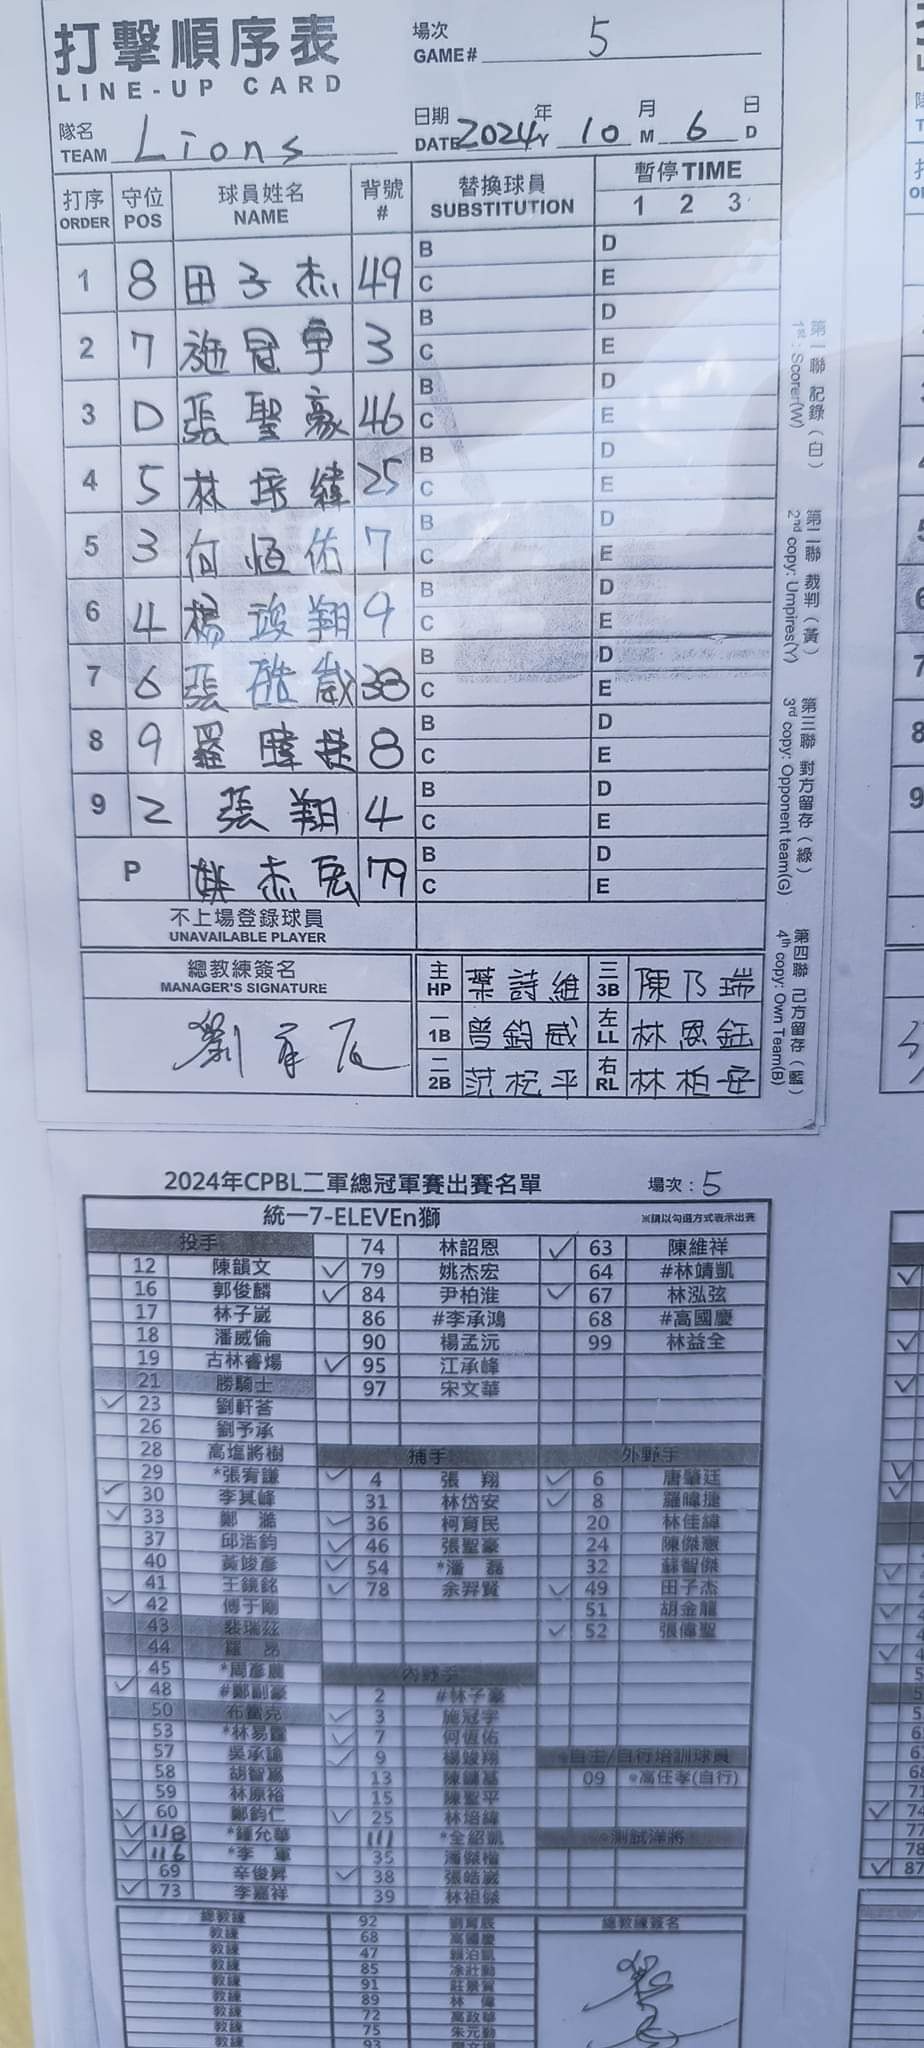 打擊順序表
LINE-UP CARD
場次
GAME# 5
隊名
TEAM Lions
日期 年 月 日
DATE 2024 Y 10 M 6 D
打序 守位 球員姓名 背號 替換球員 暫停 TIME
ORDER POS NAME # SUBSTITUTION 1 2 3
1 8 田子杰 49 B C D E
2 7 施冠宇 3 B C D E
3 D 張聖豪 46 B C D E
4 5 林培緯 25 B C D E
5 3 何恆佑 7 B C D E
6 4 楊竣翔 9 B C D E
7 6 張皓崴 38 B C D E
8 9 羅暐捷 8 B C D E
9 2 張翔 4 B C D E
P 姚杰宏 79 B C D E
不上場登錄球員
UNAVAILABLE PLAYER
總教練簽名
MANAGER'S SIGNATURE
主 HP 葉詩維 三 3B 陳乃瑞
一 1B 曾鈞威 左 LL 林恩鈺
二 2B 范松平 右 RL 林柏安
第一聯 記錄(白)
1st : Scorer(W)
第二聯 裁判(黃)
2nd copy: Umpires(Y)
第三聯 對方留存(綠)
3rd copy: Opponent team(G)
第四聯 己方留存(藍)
4th copy: Own Team(B)
2024年CPBL二軍總冠軍賽出賽名單 場次:5
統一7-ELEVEn獅 ※請以勾選方式表示出賽
投手
12 陳韻文
16 郭俊麟
17 林子崴
18 潘威倫
19 古林睿煬
21 勝騎士
✓ 23 劉軒荅
26 劉予承
28 高塩將樹
29 *張宥謙
✓ 30 李其峰
✓ 33 鄭 澔
37 邱浩鈞
40 黃竣彥
41 王鏡銘
✓ 42 傅于剛
43 裴瑞茲
44 羅 昂
45 *周彥農
✓ 48 #鄭副豪
50 布雷克
53 *林易霆
57 吳承諭
58 胡智爲
59 林原裕
✓ 60 鄭鈞仁
✓ 118 *鍾允華
✓ 116 *李 軍
69 辛俊昇
✓ 73 李嘉祥
74 林詔恩
✓ 79 姚杰宏
✓ 84 尹柏淮
86 #李承鴻
90 楊孟沅
✓ 95 江承峰
97 宋文華
捕手
✓ 4 張 翔
31 林岱安
✓ 36 柯育民
✓ 46 張聖豪
✓ 54 *潘 磊
✓ 78 余羿賢
內野手
2 #林子豪
✓ 3 施冠宇
✓ 7 何恆佑
✓ 9 楊竣翔
13 陳鏞基
15 陳聖平
✓ 25 林培緯
111 *全紹凱
35 潘傑楷
✓ 38 張皓崴
39 林祖傑
✓ 63 陳維祥
64 #林靖凱
✓ 67 林泓弦
68 #高國慶
99 林益全
外野手
✓ 6 唐肇廷
✓ 8 羅暐捷
20 林佳緯
24 陳傑憲
32 蘇智傑
✓ 49 田子杰
51 胡金龍
✓ 52 張偉聖
※自主/自行培訓球員
09 *高任孝(自行)
※測試洋將
總教練 92 劉育辰
教練 68 高國慶
教練 47
教練 85 涂壯勳
教練 91 莊景賀
教練 89 林 偉
教練 72 高政華
教練 75 朱元勤
教練 93
總教練簽名